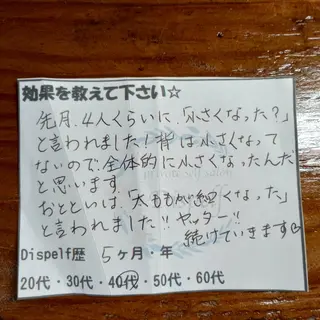 効果を教えて下さい☆
先月、4人くらいに、「小さくなった？」
と言われました！背は小さくなって
ないので、全体的に小さくなったんだ
と思います。
おとといは、「太ももが細くなった」
と言われました!! ヤッター!!
続けていきます♡
Dispelf歴 5ヶ月・年
20代・30代・40代・50代・60代